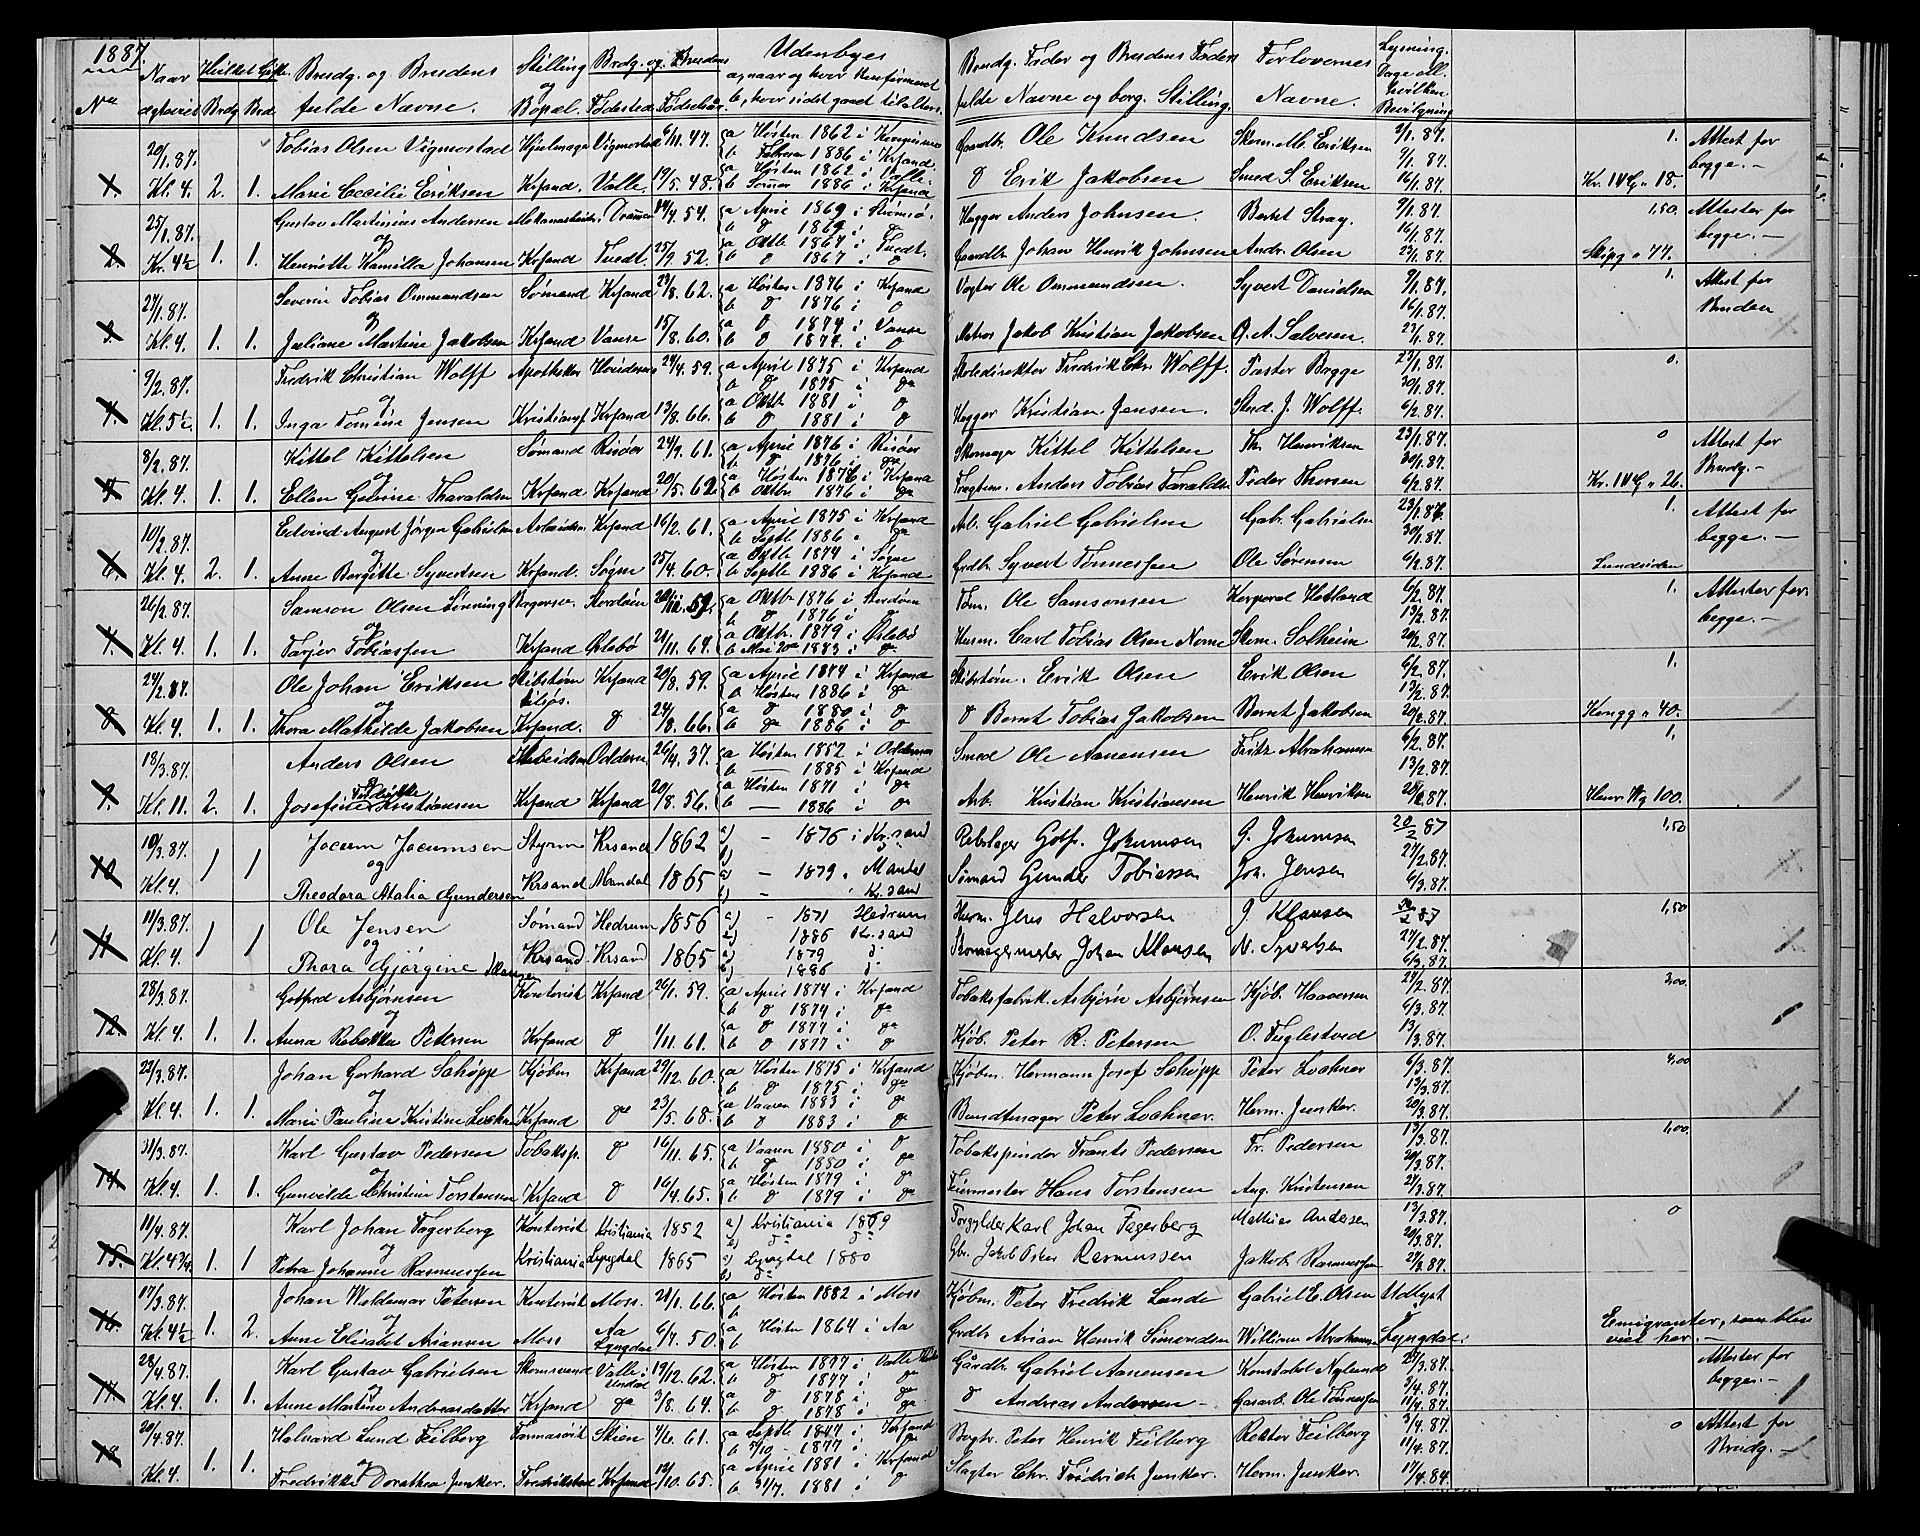 1887.
No Naar dgtvied Hvilket Gifte. Brdg. Brd. Brudg. og Brudens fulde Navne. Stilling og Bopæl. Brdg. og Brudens Fødested Fødselsaar Udenbyes a, naar og hvor Konfirmeret b, hvor sidst gaaet til alters Brudg. Fader og Brudens Faders fulde Navne og borg. Stilling. Forlovernes Navne. Lysning. Dage ell. hvilken Bevilgning
Tobias Olsen Vigmostad Hjulmager Vigmostad 6/11.47. a Høsten 1862 i Gaardbr. Ole Knudsen Skom. M. Eriksen 2/1.87. 1. Attest for
20/1.87. b Februar 1886 i Krsand 9/1.87. begge.-
1. Kl. 4. 2. 1. Marie Cecilie Eriksen Krsand. Valle. 19/5.48. a Høsten 1862 i Valle. b Somer 1886 i Krsand D Erik Jakobsen Smed S. Eriksen 16/1.87. Kr. IV G. 18.
Gustav Martinius Andersen Mekanarbeider Drammen 14/4.54. a April 1869 i Strømsø. Hugger Anders Johnsen. Beret Stray. 9/1.87. 1,50. Attester for
25/1.87. og b D 1869 16/1.87. begge.-
2. Kl. 4½ 1. 1. Henriette Kamilla Johansen Krsand Tvedt. 25/9.52. a Oktb. 1867 i Tvedt. b D 1867 i D Gaardb. Johan Henrik Johnsen Andr. Olsen 23/1.87. Skipg. 77.
Severin Tobias Ommundsen Sømand Krsand 23/8.62. a Høsten 1876 i Krsand Vogter Ole Ommundsen. Syvert Danielsen 9/1.87. 1. Attest for
27/1.87. og b D 1876 i D 16/1.87. Bruden
3. Kl. 4. 1. 1. Juliane Martine Jakobsen Krsand Vanse 15/8.60. a D 1874 i Vanse b D 1874. i D Matros Jakob Kristian Jakobsen G. A. Salvesen. 23/1.87.
Fredrik Christian Wolff Apotheker 24/4.59. a April 1875 i Krsand Skoledirektør Fredrik Chr. Wolff. Pastor Bugge 23/1.87. 0.
9/2.87. og b D 1875 i da 30/1.87.
4. Kl. 5½. 1. 1. Inga Tomine Jensen Krsand 13/8.66. a Oktb. 1881 i D b D 1881 i D Hugger Kristian Jensen. Stud. J. Wolff. 6/2.87.
Kittel Kittelsen Sømand Risør 24/9.61. a April 1876 i Risør Skomager Kittel Kittelsen Th. Henriksen 23/1.87. 0 Attest for
8/2.87. og b D 1876 i da 30/1.87. Brudg.-
5. Kl. 4. 1. 1. Ellen Gurine Tharaldsen Krsand Krsand 20/5.62. a Høsten 1876 i Krsand b Oktbr. 1876 i da Fragtem. Anders Tobias Taraldsen Peder Thorsen 6/2.87. Kr. IV G. 26.
Edvind August Jørgen Gabrielsen Arbeider Krsand 16/2.61. a April 1875 i Krsand Arb. Gabriel Gabrielsen Gab. Gabrielsen 23/1.87. 1. Attest for
10/2.87. og b Septb. 1886 i da 30/1.87. begge.-
6. Kl. 4. 2. 1. Anne Borgitte Syvertsen Krsand. Søgne 25/4.60. a Oktb. 1874 i Søgne b Septb. 1886 i Krsand Grdb. Syvert Tønnessen Ole Sørensen 6/2.87. Lundsiden
Samson Olsen Lønning Stordøen 20/11.59. a Oktbr. 1876 i Stordøen Tøm. Ole Samsonsen Korporal Hetland 6/2.87. 1. Attester for
26/2.87. og b D 1876 i D 13/2.87. begge.-
7. Kl. 4. 1. 1. Tarjer Tobiassen Krsand Øslebø 21/11.64. a Oktbr. 1879 i Øslebø b Mai 20de 1883 i da Husm. Carl Tobias Olsen Nome Skom. Solheim 20/2.87.
Ole Johan Eriksen Skibstøm. Krsand 20/8.59. a April 1874 i Krsand Skibstøm. Erik Olsen Erik Olsen 6/2.87. 1.
24/2.87. og tilsjøs. b Høsten 1886 i da 13/2.87.
8. Kl. 4. 1. 1. Thora Mathilde Jakobsen Krsand. D 24/8.66. a D 1880 i D b da 1886 i D D Bernt Tobias Jakobsen Bernt Jakobsen 20/2.87. Kongg. 40.
Anders Olsen Arbeidsm Oddernes 26/4.37. a Høsten 1852 i Oddernes Smed Ole Aanensen Fritz Abrahamsen 6/2.87. 1.
18/3.87. b — 1885 i Krsand 13/2.87.
9. Kl. 11. 2. 1. Josefine Fredrikke Kristiansen Krsand Krsand 20/8.56. a Høsten 1871 i da b — 1886 i D Arb. Kristian Kristiansen Henrik Henriksen 20/2.87. Henr. Wg 100.
Jocum Jocumsen Styrm Krsand 1862 a) - 1876 i Kr.sand Rebslager Jokumsen G. Jokumsen 20/2 87 1,50
10/3.87. og 27/2.87.
10. Kl. 4. 1 1 Theodora Atalia Gundersen Krsand Mandal 1865 a) - 1879. Mandal b) - Kr.sand Sømand Gunder Tobiassen Joh. Jensen 6/3.87.
Ole Jensen Sømand Hedrum 1856 a) - 1871 Hedrum Husm. Jens Halvorsen J. Klausen 20/2 87 1,50
11/3.87. og b) 1886 Kr.sand 27/2.87.
11 Kl. 4. 1 1 Thora Gjørgine Klausen Krsand. Krsand 1865 a) 1879 d b) 1886 d Skomagermester Johan Klausen N. Syvertsen 6/3.87.
Gotfred Asbjørnsen Kontorist Krsand 26/1.59. a April 1874 i Krsand Tobaksfabrik. Asbjørn Asbjørnsen Kjøb. Haaversen 27/2.87. 3,00.
28/3.87. og b D 1874 i da 6/3.87.
12. Kl. 4. 1. 1. Anna Rebekka Petersen Krsand D 1/11.61. a D 1877 i da b D 1877 i D Kjøb. Peter R. Petersen O. Fuglestved 13/3.87.
Johan Gerhard Schøpp Kjøbm Krsand 29/12.60. a Høsten 1875 i Krsand Kjøbm. Hermann Josef Schøpp Peter Lochner 6/3.87. 4,00
22/3.87. og b D 1875 i da 13/3.87.
Kl. 4. 1. 1. Marie Paulina Kristine Lochner Krsand da 23/5.68. a Vaaren 1883 i D b D 1883 i da Bundtmager Peter Lochner. Herm. Junker. 20/3.87.
Karl Gustav Pedersen Tobaksp. D 16/11.65. a Vaaren 1880 i D Tobakspinder Frants Pedersen Fr. Pedersen 13/3.87. 1,00.
31/3.87. og b D 1880 i da 20/3.87.
14. Kl. 4. 1. 1. Gunvilde Christine Torstensen Krsand D 16/4.65. a Høsten 1879 i da b D 1879 i da Feiermester Hans Torstensen Aug. Kristensen 27/3.87.
Karl Johan Fagerberg Kontorist Kristiania 1852 a) Kristiania 1869 Forgylder Karl Johan Fagerberg Mathias Andersen 13/3.87. 0
11/4.87. og b) da 20/3.87.
15. Kl. 4¾. 1 1 Petra Johanne Rasmussen Kristiania Lyngdal 1865 a) Lyngdal 1880 b) da Gbr. Jakob Peder Rasmussen Jakob Rasmussen 27/3.87.
Johan Waldemar Petersen Kontorist Moss. 21/1.66. a Høsten 1882 i Moss Kjøbm. Peter Fredrik Lunde Gabriel E. Olsen Udlyst
17/3.87. og b i Emigranter, som blev
16. Kl. 4½ 1. 2. Anne Elisabet Ariansen Moss Aa Lyngdal 6/7.50. a Høsten 1864 i Aa b Grdb. Arian Henrik Simonsen William Abrahamsen Lyngdal. viet her.-
Karl Gustav Gabrielsen Skomsvend Valle i Undal 19/12.62. a Høsten 1877 i Valle Gårdb. Gabriel Aanensen Konstabel Nylund 27/3.87. Attester for
28/4.87. og b D 1877 i da 3/4.87. begge.-
17. Kl. 4. 1. 1. Anne Martine Andreasdatter Krsand da 3/8.64. a D 1878 i da b D 1878 i da D Andreas Andersen - Garverb. Ole Tønnessen 11/4.87.
Halvard Lund Feilberg Farmasøit Skien 4/6.61. a Septb 1877 i Krsand Bogtr. Peter Henrik Feilberg Rektor Feilberg 3/4.87. 0 Attest for
20/4.87. og b 5/10 - 1877 i da 11/4.87. Brudg.-
18. Kl. 4. 1. 1. Fredrikke Dorothea Junker. Fredrikstad Krsand 12/10.65. a April 1881 i Krsand b 31/7. 1881 i D Slagter Chr. Fridrich Junker. Herm. Junker. 17/4.84.